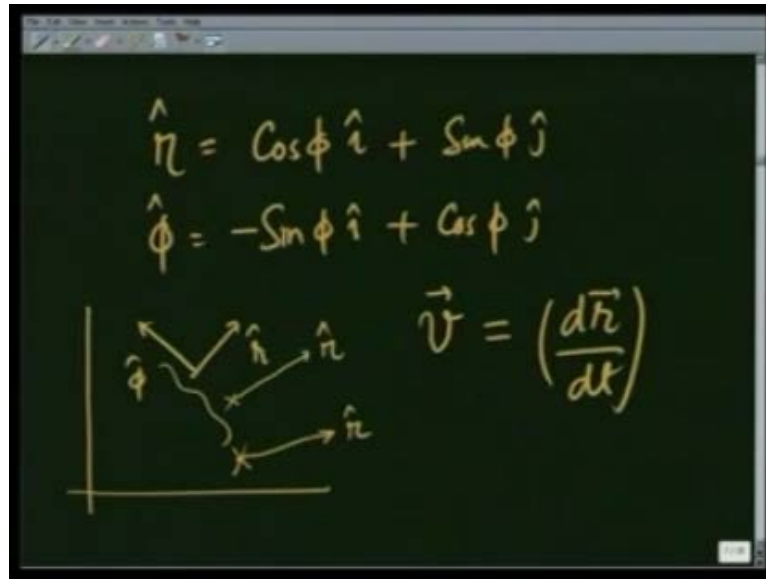 File Edit View Insert Actions Tools Help
r̂ = Cosϕ î + Sinϕ ĵ
ϕ̂ = -Sinϕ î + Cosϕ ĵ
v⃗ = (dr⃗/dt)
ϕ̂ r̂ r̂
r̂